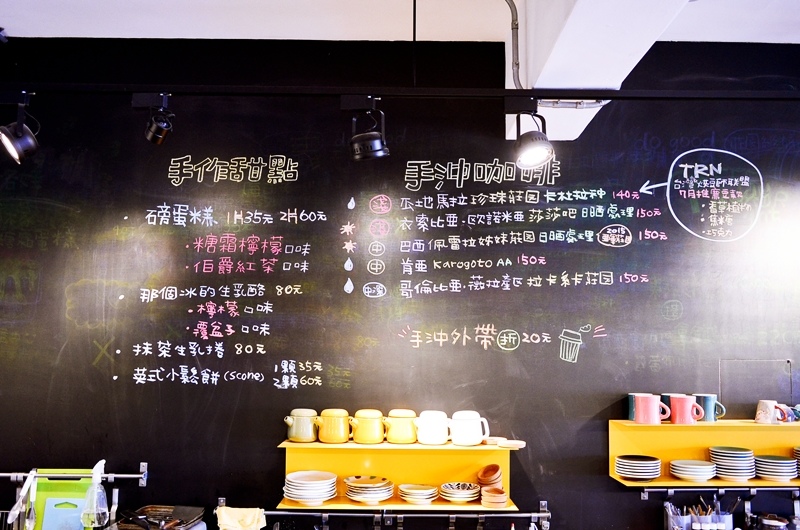 手作甜點
磅蛋糕、1片35元 2片60元
·糖霜檸檬口味
·伯爵紅茶口味
·那個冰的生乳酪 80元
·檸檬口味
·覆盆子口味
·抹茶生乳捲 80元
·英式小鬆餅(scone) 1顆35元
2顆60元
手沖咖啡
瓜地馬拉珍珠莊園卡杜拉種 140元
衣索比亞·歐諾米亞莎莎吧日曬處理150元
中 巴西佩雷拉姊妹莊園日曬處理 2015 150元
中 肯亞 Karogoto AA 150元
中深 哥倫比亞·薇拉產區拉卡系卡莊園 150元
手沖外帶折20元
TRN
台灣烘豆師聯盟
7月推薦豆款
·焦糖
·巧克力